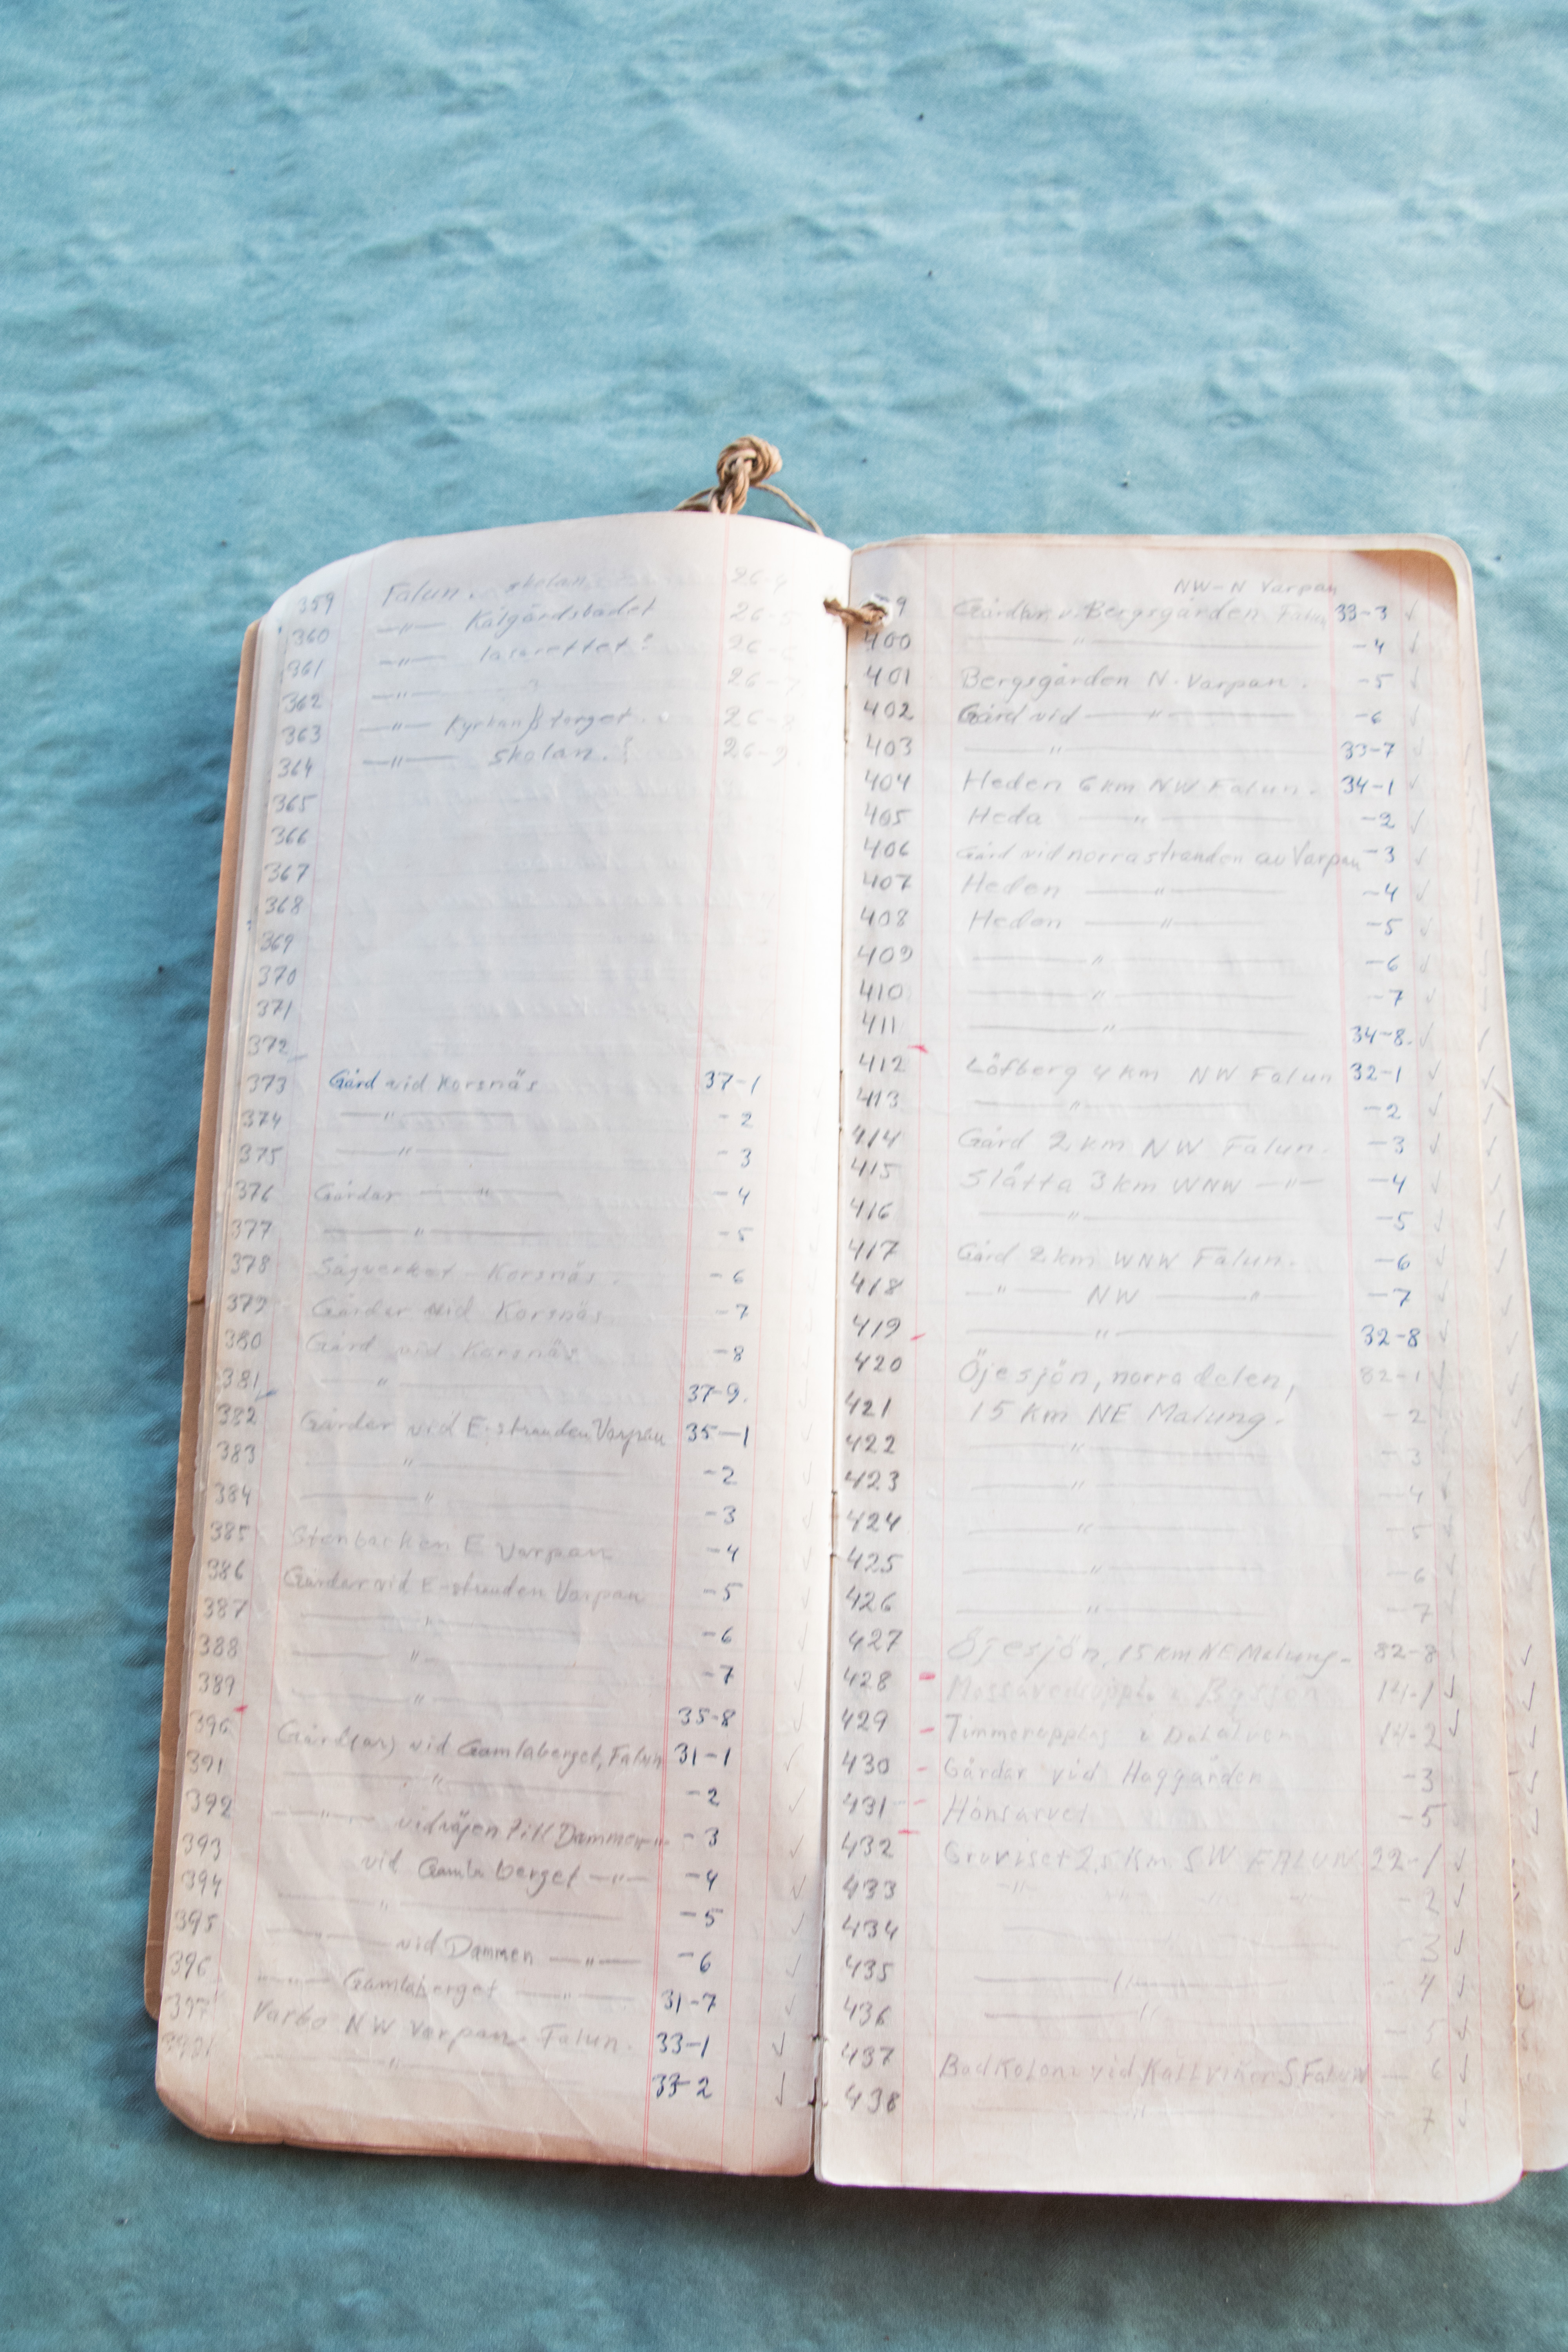 359 Falun. skolan. 26-4
360 —"— Kålgårdsbadet 26-5
361 —"— lasarettet? 26-6
362 —"— 26-7
363 —"— Kyrkan torget. 26-8
364 —"— skolan. 26-9
365
366
367
368
369
370
371
372
373 Gård vid Korsnäs 37-1
374 —"— -2
375 —"— -3
376 Gårdar —"— -4
377 —"— -5
378 Sågverket Korsnäs. -6
379 Gårdar vid Korsnäs -7
380 Gård vid Korsnäs -8
381 —"— 37-9.
382 Gårdar vid E-stranden Varpan 35-1
383 —"— -2
384 —"— -3
385 Stenbacken E Varpan -4
386 Gårdar vid E-stranden Varpan -5
387 —"— -6
388 —"— -7
389 —"— 35-8
390 Gård(ar) vid Gamlaberget, Falun 31-1
391 —"— -2
392 —"— vid vägen till Dammen —"— -3
393 vid Gamla berget —"— -4
394 —"— -5
395 —— vid Dammen —"— -6
396 —"— Gamlaberget —"— 31-7
397 Varbo NW Varpan. Falun. 33-1
398 —"— 33-2
NW-N Varpan
9 Gårdar v. Bergsgården Falun 33-3 ✓
400 —"— -4 ✓
401 Bergsgården N. Varpan. -5 ✓
402 Gård vid —"— -6 ✓
403 —"— 33-7 ✓
404 Heden 6 km NW Falun. 34-1 ✓
405 Heda —"— -2 ✓
406 Gård vid norra stranden av Varpan -3 ✓
407 Heden —"— -4 ✓
408 Heden —"— -5 ✓
409 —"— -6 ✓
410 —"— -7 ✓
411 —"— 34-8. ✓
412 Löfberg 4 km NW Falun 32-1 ✓
413 —"— -2 ✓
414 Gård 2 km NW Falun. -3 ✓
415 Slätta 3 km WNW —"— -4 ✓
416 —"— -5 ✓
417 Gård 2 km WNW Falun. -6 ✓
418 —"— NW —"— -7 ✓
419 —"— 32-8 ✓
420 Öjesjön, norra delen, 82-1
421 15 km NE Malung. -2
422 —"— -3
423 —"— -4
424 —"— -5
425 —"— -6
426 —"— -7
427 Öjesjön, 15 km NE Malung. 82-8
428 14-1 ✓
429 Timmerupplag i Dalälven 14-2 ✓
430 Gårdar vid Haggården -3
431 Hönsarvet -5
432 2,5 km SW FALUN 22-1 ✓
433 —"— -2 ✓
434 3 ✓
435 —"— -4 ✓
436 —"— -5 ✓
437 Badkoloni vid Källviken S Falun — 6 ✓
438 —"— 7 ✓